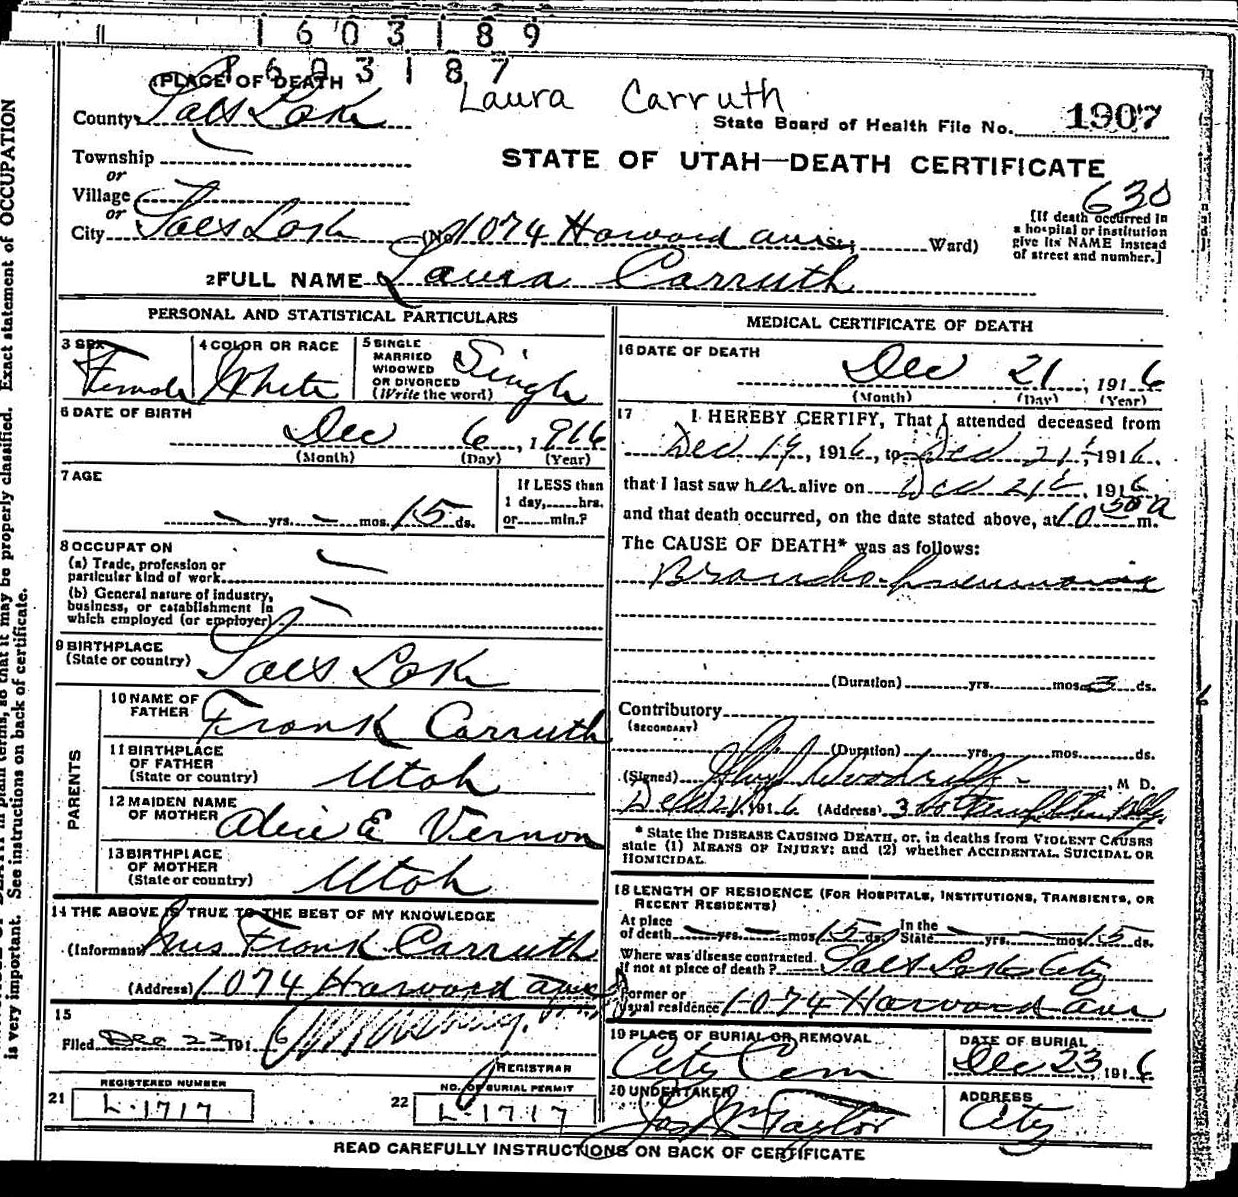 1603189
1603187
PLACE OF DEATH
Laura Carruth
County Salt Lake
State Board of Health File No. 1907
Township
STATE OF UTAH—DEATH CERTIFICATE
or
Village
630
or
City Salt Lake (No. 1074 Harvard ave St; Ward)
[If death occurred in a hospital or institution give its NAME instead of street and number.]
2 FULL NAME Laura Carruth
PERSONAL AND STATISTICAL PARTICULARS
3 SEX Female
4 COLOR OR RACE White
5 SINGLE MARRIED WIDOWED OR DIVORCED (Write the word) Single
6 DATE OF BIRTH
Dec 6, 1916
(Month) (Day) (Year)
7 AGE
— yrs. — mos. 15 ds.
If LESS than 1 day, hrs. or min.?
8 OCCUPATION
(a) Trade, profession or particular kind of work —
(b) General nature of industry, business, or establishment in which employed (or employer) —
9 BIRTHPLACE (State or country) Salt Lake
PARENTS
10 NAME OF FATHER Frank Carruth
11 BIRTHPLACE OF FATHER (State or country) Utah
12 MAIDEN NAME OF MOTHER Alice E Vernon
13 BIRTHPLACE OF MOTHER (State or country) Utah
14 THE ABOVE IS TRUE TO THE BEST OF MY KNOWLEDGE
(Informant) Mrs Frank Carruth
(Address) 1074 Harvard ave
15
Filed Dec 22 191 6
REGISTRAR
REGISTERED NUMBER
21 L-1717
NO. OF BURIAL PERMIT
22 L-1717
MEDICAL CERTIFICATE OF DEATH
16 DATE OF DEATH
Dec 21, 1916
(Month) (Day) (Year)
17 I HEREBY CERTIFY, That I attended deceased from
Dec 19, 1916, to Dec 21st, 1916,
that I last saw her alive on Dec 21st, 1916
and that death occurred, on the date stated above, at 10 30 a m.
The CAUSE OF DEATH* was as follows:
Broncho-pneumonia
(Duration) yrs. mos. 3 ds.
Contributory
(SECONDARY)
(Duration) yrs. mos. ds.
(Signed) Woodruff, M D.
Dec 21, 1916 (Address)
* State the DISEASE CAUSING DEATH, or, in deaths from VIOLENT CAUSES
state (1) MEANS OF INJURY; and (2) whether ACCIDENTAL, SUICIDAL OR
HOMICIDAL.
18 LENGTH OF RESIDENCE (FOR HOSPITALS, INSTITUTIONS, TRANSIENTS, OR
RECENT RESIDENTS)
At place of death — yrs. — mos. 15 ds. In the State — yrs. — mos. 15 ds.
Where was disease contracted, if not at place of death? Salt Lake City
Former or usual residence 1074 Harvard ave
19 PLACE OF BURIAL OR REMOVAL City Cem
DATE OF BURIAL Dec 23, 1916
20 UNDERTAKER Jos Wm Taylor
ADDRESS City
READ CAREFULLY INSTRUCTIONS ON BACK OF CERTIFICATE
in plain terms, so that it may be properly classified. Exact statement of OCCUPATION
is very important. See instructions on back of certificate.